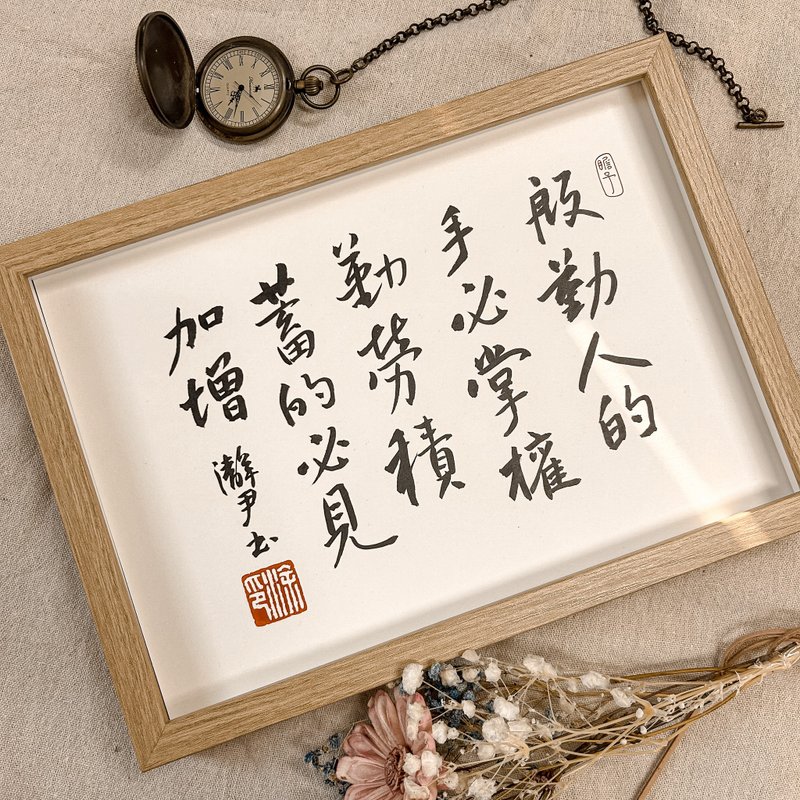 瞻子
殷勤人的
手必掌權
勤勞積
蓄的必見
加增
瀞尹書